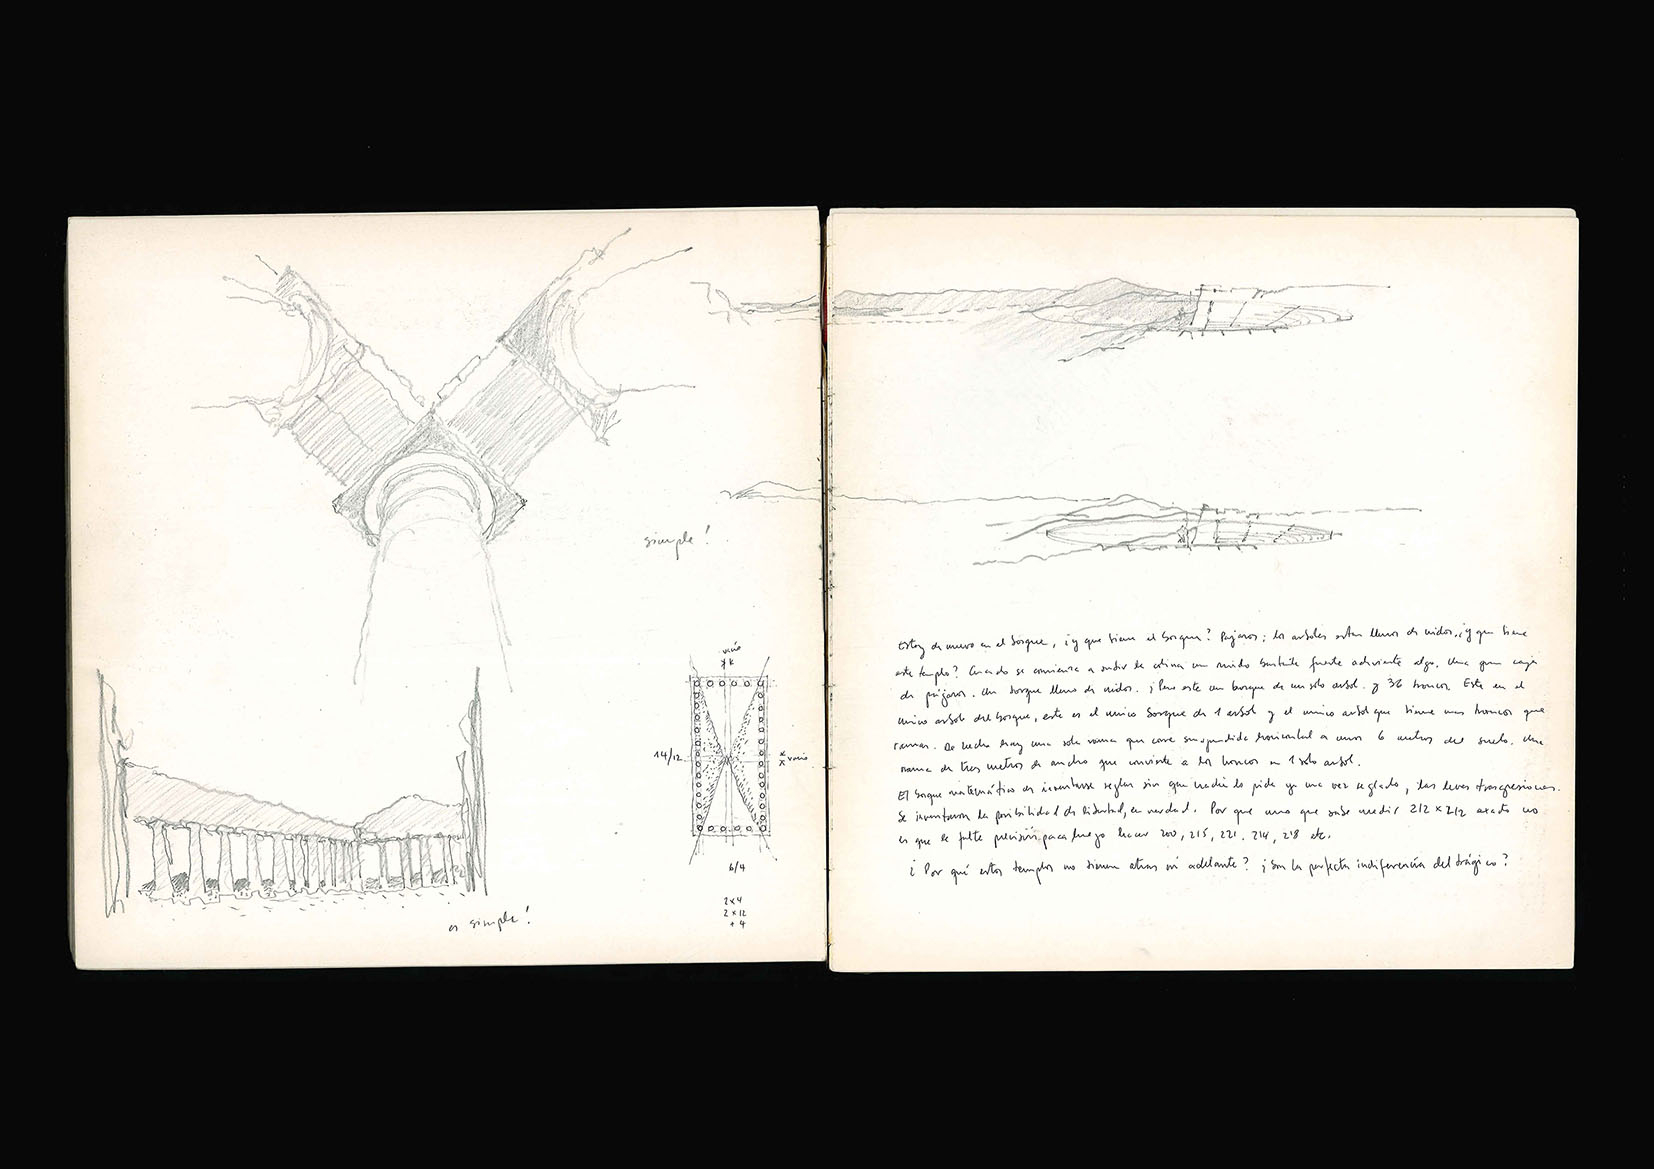 simple!
es simple!
vacío
* K
14/12
vacío
6/4
2x4
2x12
+4
Estoy de nuevo en el bosque, ¿y que tiene el bosque? Pajaros; los arboles estan llenos de nidos. ¿y que tiene
este templo? Cuando se comienza a subir la colina un ruido bastante fuerte advierte algo. Una gran caja
de pájaros. Un bosque lleno de nidos. ¡Pero este un bosque de un solo arbol. y 36 troncos. Este es el
unico arbol del bosque, este es el unico bosque de 1 arbol y el unico arbol que tiene mas troncos que
ramas. De hecho hay una sola rama que corre suspendida horizontal a unos 6 metros del suelo. Una
rama de tres metros de ancho que convierte a los troncos en 1 solo arbol.
El bosque matemático es inventarse reglas sin que nadie lo pida ya una vez reglado, las leves trasgresiones.
Se inventaron la posibilidad de libertad, en verdad. Por que uno que sabe medir 212 x 212 exacto no
es que le falte precisión para luego hacer 200, 215, 221, 214, 218 etc.
¿Por qué estos templos no tienen atras ni adelante? ¿Son la perfecta indiferencia del trágico?